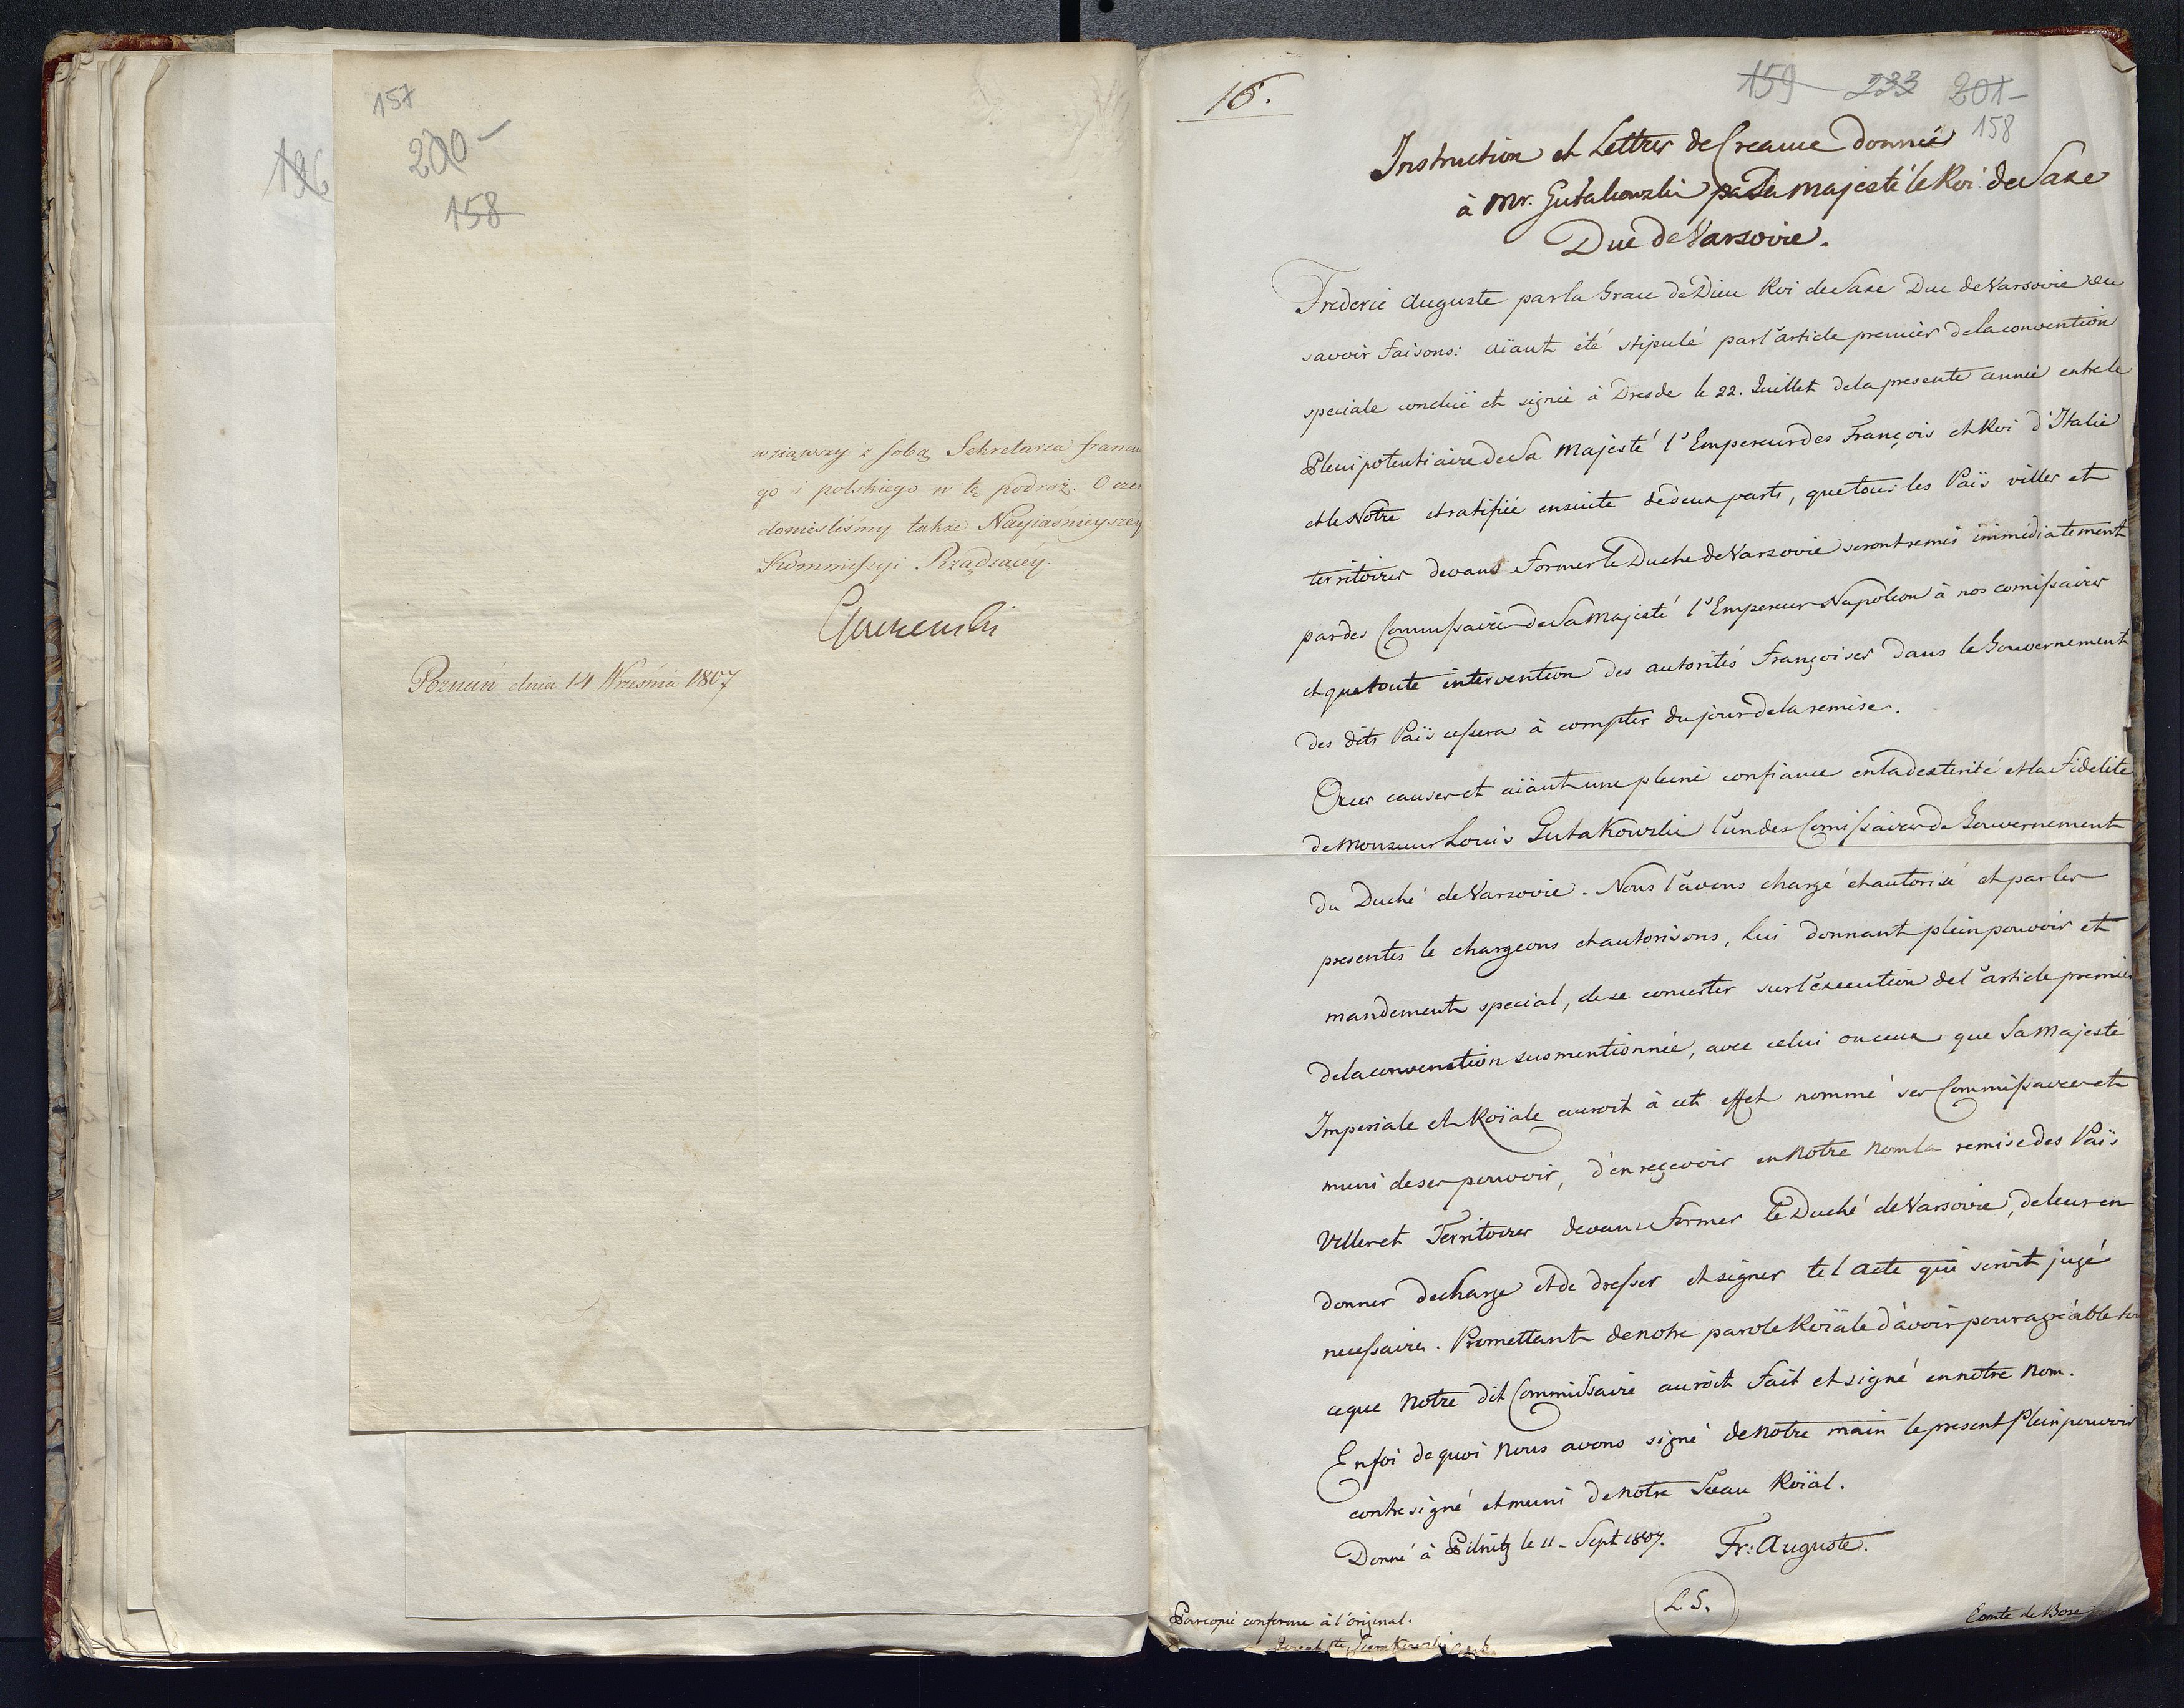 157
200-
158
196
wziąwszy z sobą Sekretarza francu
go i polskiego w tę podroż. O czem
donieśliśmy także Nayiaśnieyszey
Kommissyi Rządzącey.
Poznań dnia 14 Września 1807
16.
159 233 201-
158
Instruction et Lettres de Creance données
à Mr. Gutakowski par Sa Majesté le Roi de Saxe
Duc de Varsovie.
Frederic Auguste par la Grace de Dieu Roi de Saxe Duc de Varsovie
savoir faisons: aïant été stipulé par l'article premier de la convention
speciale concluë et signée à Dresde le 22. Juillet de la presente année entre le
Plenipotentiaire de Sa Majesté l'Empereur des François et Roi d'Italie
et le Notre et ratifiée ensuite de deux parts, que tous les Païs villes et
territoires devant former le Duché de Varsovie seront remis immédiatement
par des Commissaires de Sa Majesté l'Empereur Napoleon à nos comissaires
et que toute intervention des autorités Françoises dans le Gouvernement
des dits Païs cessera à compter du jour de la remise.
A ces causes et aïant une pleine confiance en la dexterité et la Fidelité
de Monsieur Louis Gutakowski l'un des Comissaires de Gouvernement
du Duché de Varsovie. Nous l'avons chargé et autorisé et par les
presentes le chargeons et autorisons, lui donnant plein pouvoir et
mandement special, de se concerter sur l'execution de l'article premier
de la convenction susmentionnée, avec celui ou ceux que Sa Majesté
Imperiale et Roïale auroit à cet effet nommé ses Commissaires et
muni de ses pouvoir, d'en reçevoir en Notre Nom la remise des Païs
Villes et Territoires devant former le Duché de Varsovie, de leur en
donner decharge et de dresser et signer tel acte qui seroit jugé
necessaire. Promettant de notre parole Roïale d'avoir pour agréable
ce que Notre dit Commissaire auroit Fait et signé en notre Nom.
En foi de quoi Nous avons signé de Notre main le present Plein pouvoir
contresigné et muni de Notre Sceau Roïal.
Donné à Pilnitz le 11 - Sept 1807. Fr: Auguste.
L.S.
Comte de Bose
Pour copie conforme à l'original.